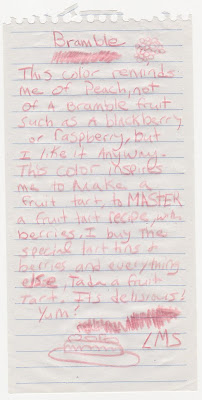 Bramble
This color reminds
me of Peach, not
of A Bramble fruit
such as A blackberry
or raspberry, but
I like it Anyway.
This color inspires
me to Make a
fruit tart, to MASTER
a fruit tart recipe, with
berries. I buy the
special tart tins &
berries and everything
else, Tada a fruit
Tart. Its delicious!
Yum!
LMS